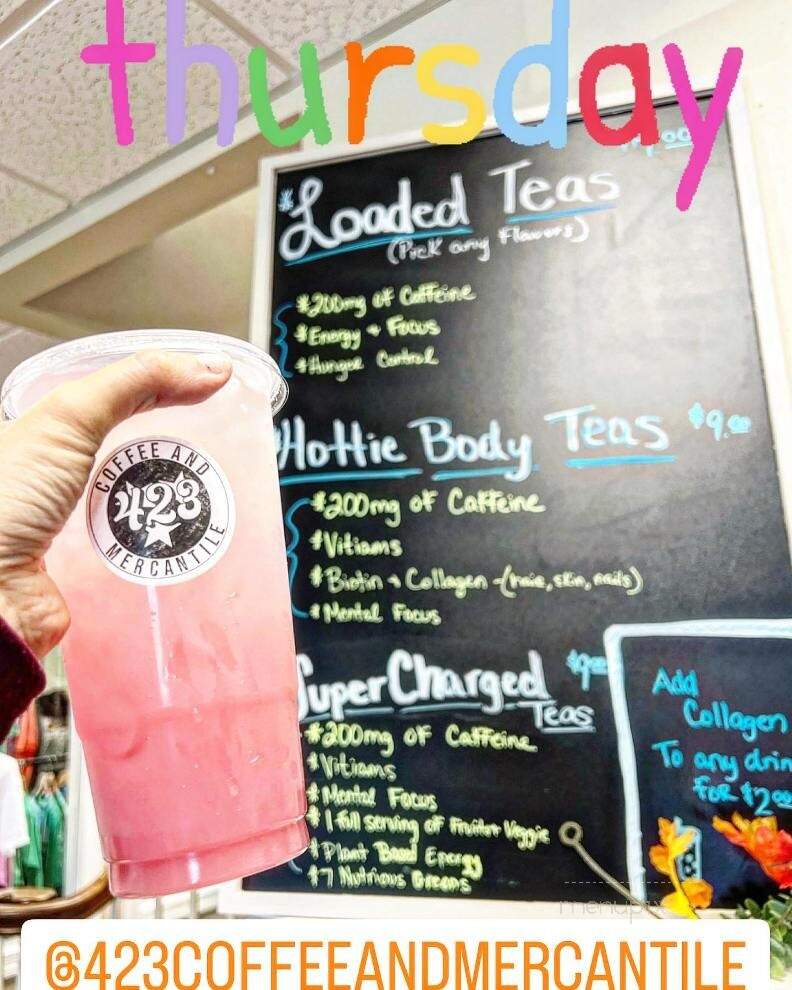 thursday
*Loaded Teas
(Pick any Flavors)
*200mg of Caffeine
*Energy + Focus
*Hungre Control
Hottie Body Teas $9.00
*200mg of Caffeine
*Vitiams
*Biotin + Collagen -(hair, skin, nails)
*Mental Focus
Super Charged $9.00
Teas
*200mg of Caffeine
*Vitiams
*Mental Focus
*1 full serving of Fruit or Veggie
*Plant Based Energy
*7 Nutrious Greens
Add
Collagen
To any drin
for $2.00
COFFEE AND
423
MERCANTILE
menupix
@423COFFEEANDMERCANTILE